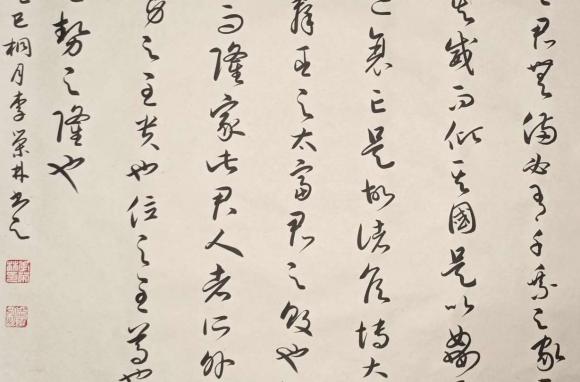 之君無備必有千乘之家
其威而傾其國是以姦
道衰亡是故諸侯博大
群臣之太富君之敗也
而隆家此君人者所外
身之至貴也位之至尊也
勢之隆也
乙巳桐月李榮林書